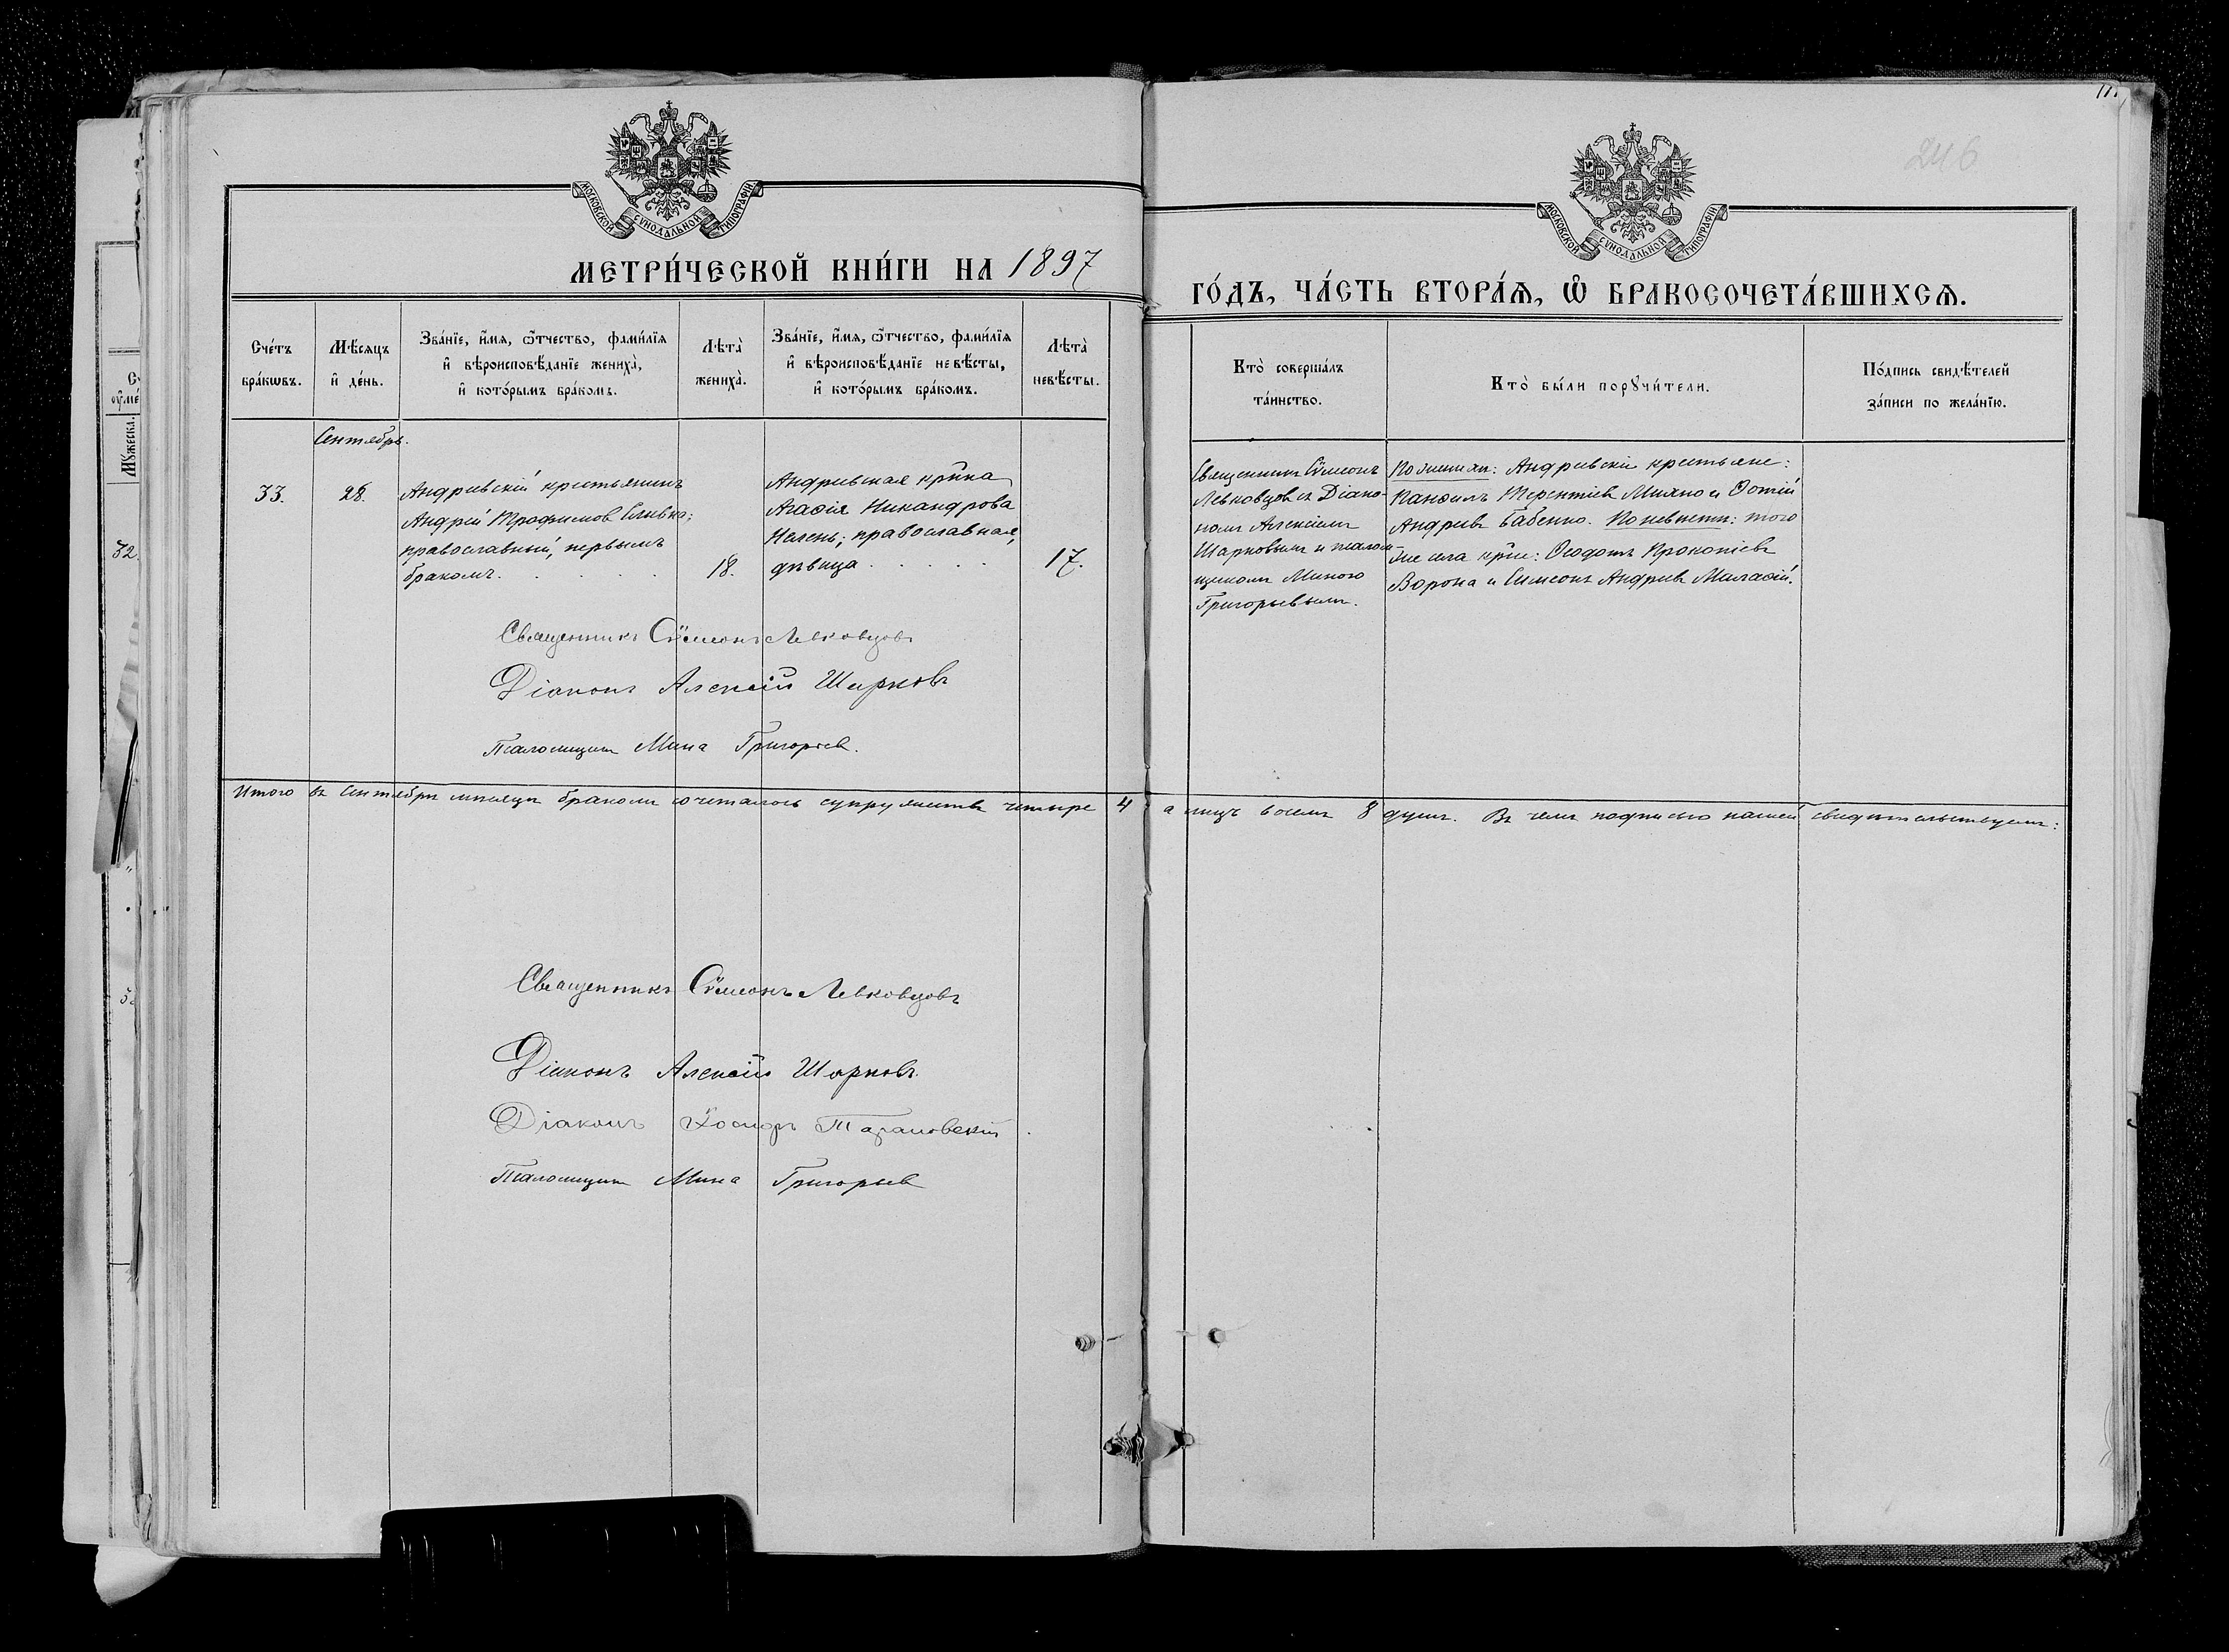 246
МОСКОВСКОЙ СѴНОДАЛЬНОЙ ТИПОГРАФІИ
МОСКОВСКОЙ СѴНОДАЛЬНОЙ ТИПОГРАФІИ
МЕТРИ́ЧЕСКОЙ КНИ́ГИ НА 1897
ГО́ДЪ, ЧА́СТЬ ВТОРА́Ѧ, Ѽ БРАКОСОЧЕТА́ВШИХСѦ.
Сче́тъ
бра́кѡвъ.
Мѣ́сяцъ
и҆ де́нь.
Зва́нїе, и҆́мѧ, ѻ҆́тчество, фами́лїѧ
и҆ вѣроисповѣ́данїе жениха̀,
и҆ кото́рымъ бра́комъ.
Лѣта̀
жениха̀.
Зва́нїе, и҆́мѧ, ѻ҆́тчество, фами́лїѧ
и҆ вѣроисповѣ́данїе невѣ́сты,
и҆ кото́рымъ бра́комъ.
Лѣта̀
невѣ́сты.
Кто̀ соверша́лъ
та́инство.
Кто̀ бы́ли порꙋчи́тели.
По́дпись свидѣ́телей
за́писи по жела́нїю.
Сентябрь.
33.
28.
Андреевскій крестьянинъ
Андрей Трофимов Сливка;
православный, первымъ
бракомъ. . . . . .
18.
Андреевская кр–нка
Агафія Никандрова
Нелень; православная,
дѣвица . . . . .
17.
Священникъ Сѷмеонъ
Левковцов съ Діако-
номъ Алексіемъ
Шарковымъ и псалом-
щикомъ Миною
Григорьевымъ.
По женихѣ: Андреевскіе крестьяне:
Панфилъ Терентіевъ Михно и Фотій
Андреев Бабенко. По невѣстѣ: того
же села кр–не: Феодотъ Прокопіевъ
Ворона и Симеонъ Андреев Милафій.
Священникъ Сѷмеонъ Левковцовъ
Діаконъ Алексій Шарковъ
Псаломщикъ Мина Григорьев.
Итого въ Сентябрѣ мѣсяцѣ бракомъ сочеталось супружествъ четыре 4 а лицъ восемь 8 душъ. Въ чемъ подписью нашей свидѣтельствуемъ:
Священникъ Сѷмеонъ Левковцовъ
Діаконъ Алексій Шарковъ.
Діаконъ Тарановскій.
Псаломщикъ Мина Григорьев
Мꙋжеска.
32.